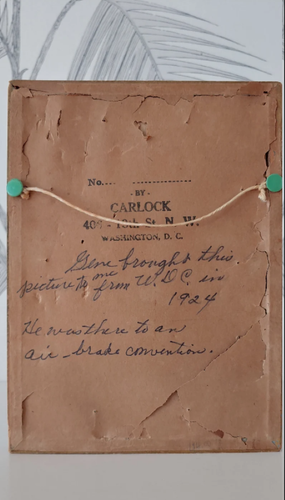 No.... ................
- BY -
CARLOCK
St. N. W.
WASHINGTON, D. C.
Gene brought this
picture to me from W.D.C. in
1924
He was there to an
air-brake convention.